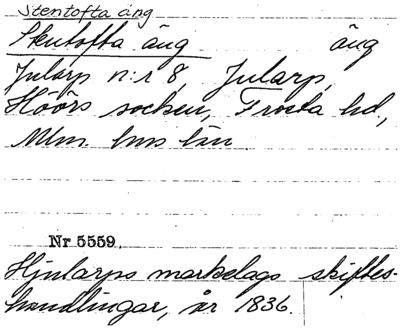 Stentofta äng
Skutofta äng äng
Jularp n:r 8, Jularp,
Höörs socken, Frosta hd,
Mlm. hus län.
Nr 5559.
Hjularps markelags skiftes-
handlingar, år 1836.